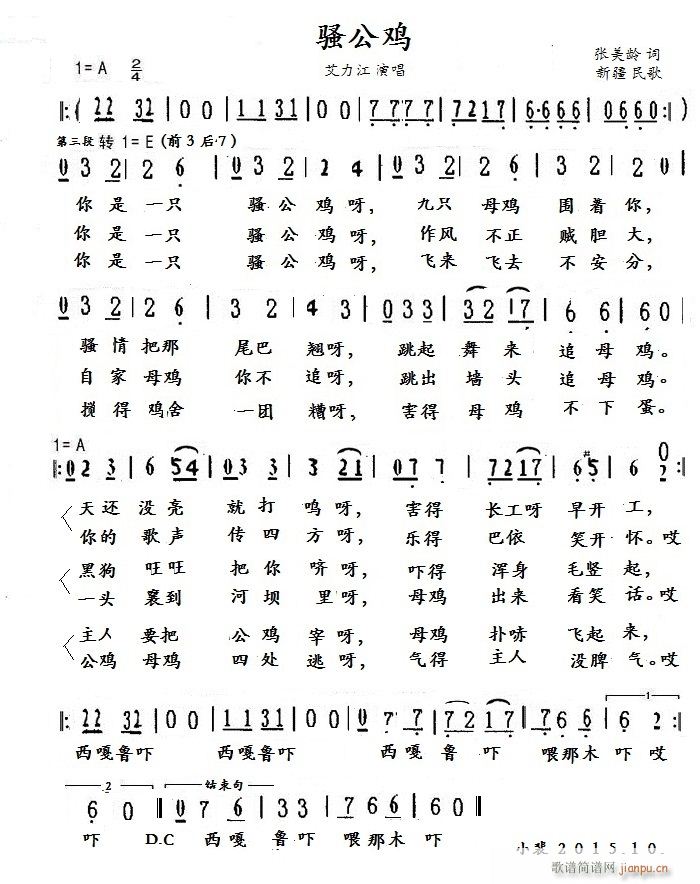 骚公鸡
1=A 2/4 艾力江 演唱 张美龄 词
新疆 民歌
‖:( 22 32 | 0 0 | 1131 | 0 0 | 7 777 | 7 7 | 7217 | 6·666 | 60 60 :‖)
第三段 转 1=E (前 3 后·7)
0 3 2 | 2 6 | 0 3 3 | 2 4 | 0 3 3 | 3 2 | 3 2 | 2 0 |
你是一只 骚公鸡呀, 九只 母鸡 围着你,
你是一只 骚公鸡呀, 作风 不正 贼胆大,
你是一只 骚公鸡呀, 飞来 飞去 不安分,
0 3 2 | 2 6 | 3 2 | 4 3 | 0 3 3 | 3 2 1 7 | 6 6 | 6 0 |
骚情把那 尾巴 翘呀, 跳起 舞来 追母鸡。
自家母鸡 你不 追呀, 跳出 墙头 追母鸡。
搅得鸡舍 一团 糟呀, 害得 母鸡 不下蛋。
1=A
‖: 0 2 3 | 6 5 4 | 0 3 3 | 3 2 1 | 0 7 7 | 7217 | 6 #5 | 6 0 2 :‖
天还 没亮 就打 鸣呀, 害得 长工呀 早开工,
你的 歌声 传四 方呀, 乐得 巴依 笑开怀。哎
黑狗 旺旺 把你 哜呀, 吓得 浑身 毛竖起,
一头 襄到 河坝 里呀, 母鸡 出来 看笑话。哎
主人 要把 公鸡 宰呀, 母鸡 扑哧 飞起来,
公鸡 母鸡 四处 逃呀, 气得 主人 没脾气。哎
‖: 22 32 | 0 0 | 1131 | 0 0 | 22 32 | 0 0 | 0 7 7 | 7 2 1 7 | 7 6 7 6 | 1 6 2 :‖
西嘎鲁吓 西嘎鲁吓 西嘎鲁 吓 喂那木 吓哎
2 结束句
6 0 ‖ 0 7 6 | 3 3 | 0 7 7 6 | 6 0 ‖
吓 D.C 西嘎 鲁吓 喂那木 吓
小裴 2015.10.
歌谱简谱网
jianpu.cn